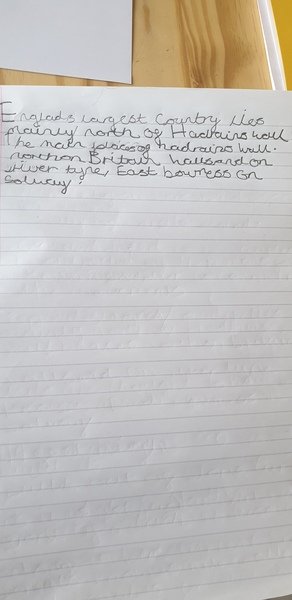 Englads largest Country lies
mainly north of Hadrains wall
The main places of hadrains wall.
northon Britain wallsend on
river tyne, East bowness on
Solway.